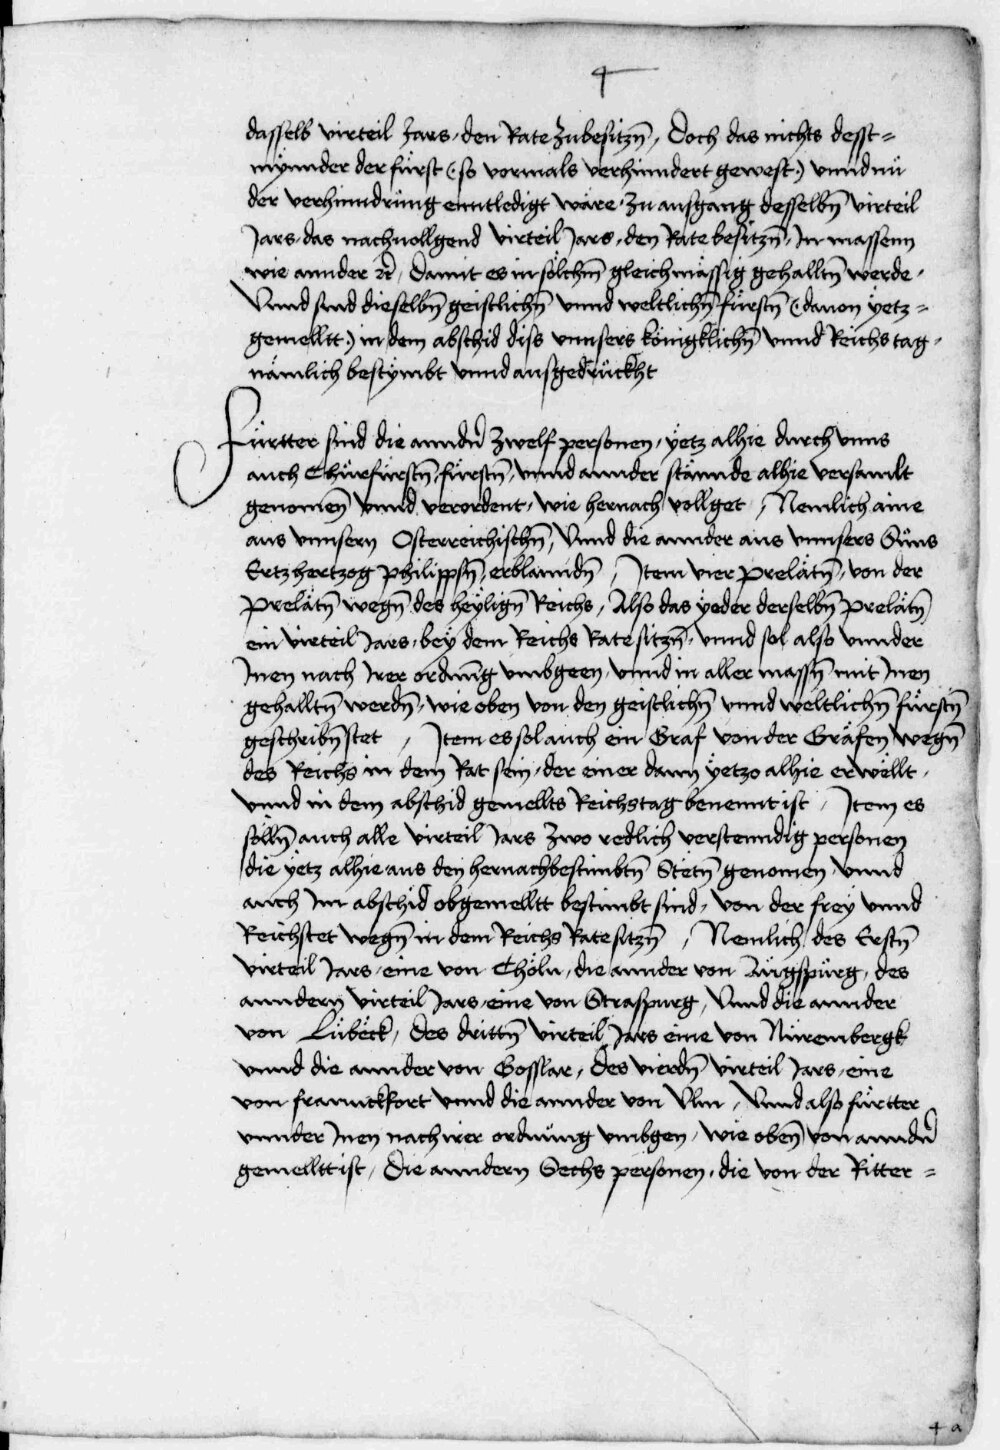 4
dasselb virteil Jars, den Rate zubesitzn̄, Doch das nichts desst=
mynnder der fürst (: so vormals verhinndert gewest :) vnnd nü
der verhinndrüng enntledigt wäre, zu ausgang desselbn̄ virteil
Jars, das nachuollgend virteil Jars, den Rate besitzn̄, In massenn
wie annder ꝛc̄, damit es in sölchm̄ gleichmässig gehalltn̄ werde,
Vnnd sind dieselbn̄ geistlichn̄ vnnd weltlichn̄ fürstn̄ (: dauon ÿetz=
gemelltt :) in dem abschid diss vnnsers königklichn̄ vnnd Reichs tag,
nämlich bestymbt vnnd ausgedrückht
Fürtter sind die anndn̄ zwelf personen, ÿetz alhie durch vnns
auch Chürfürstn̄, fürstn̄, vnnd annder stännde alhie versamlt
genomen̄ vnnd verordent, wie hernach vollget, Nemlich aine
aus vnnsern Osterreichischn̄, Vnnd die annder aus vnnsers Süns
Ertzhertzog philippsn̄, erblanndn̄, Item vier prelätn̄, von der
prelätn̄ wegn̄ des heÿlign̄ Reichs, Also das ÿeder derselbn̄ prelätn̄
ein virteil Jars, beÿ dem Reichs Rate sitzn̄, vnnd sol also vnnder
Inen nach Irer ordnūg vmbgeen, vnnd in aller massn̄ mit Inen
gehalltn̄ werdn̄, wie oben von den geistlichn̄ vnnd weltlichn̄ fürstn̄
geschribn̄ stet, Item es sol auch ein Graf von der Gräfen wegn̄
des Reichs in dem Rat sein, der einer dann ÿetzo alhie erwöllt,
vnnd in dem abschid gemellts Reichstag benennt ist, Item es
sölln̄ auch alle virteil Jars zwo redlich verstenndig personen
die ÿetz alhie aus den hernachbestimbtn̄ Stetn̄ genomen, vnnd
auch Im abschid obgemelltt bestimbt sind, von der freÿ vnnd
Reichstet wegn̄ in dem Reichs Rate sitzn̄, Nemlich des Erstn̄
virteil Jars, eine von Chöln, die annder von Augspürg, des
anndern virteil Jars, eine von Straspurg, Vnnd die annder
von Lübeck, des drittn̄ virteil Jars eine von Nürembergk
vnnd die annder von Gosslar, des vierdn̄ virteil Jars, eine
von franckfort vnnd die annder von Vlm, Vnnd also fürtter
vnnder Inen nach irer ordnüng vmbgen, wie oben̄ von anndn̄
gemelltt ist, Die anndern Sechs personen, die von der Ritter=
4 a